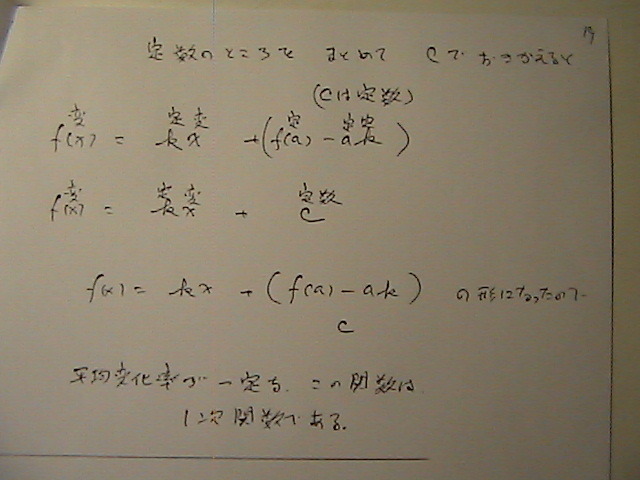 定数のところを まとめて Cで おきかえると
(Cは定数)
変 定変 定 定定
f(x) = kx + (f(a) - ak)
変 定変 定数
f(x) = kx + C
f(x) = kx + (f(a) - ak) の形になったので
C
平均変化率が 一定な この関数は
1次関数である.